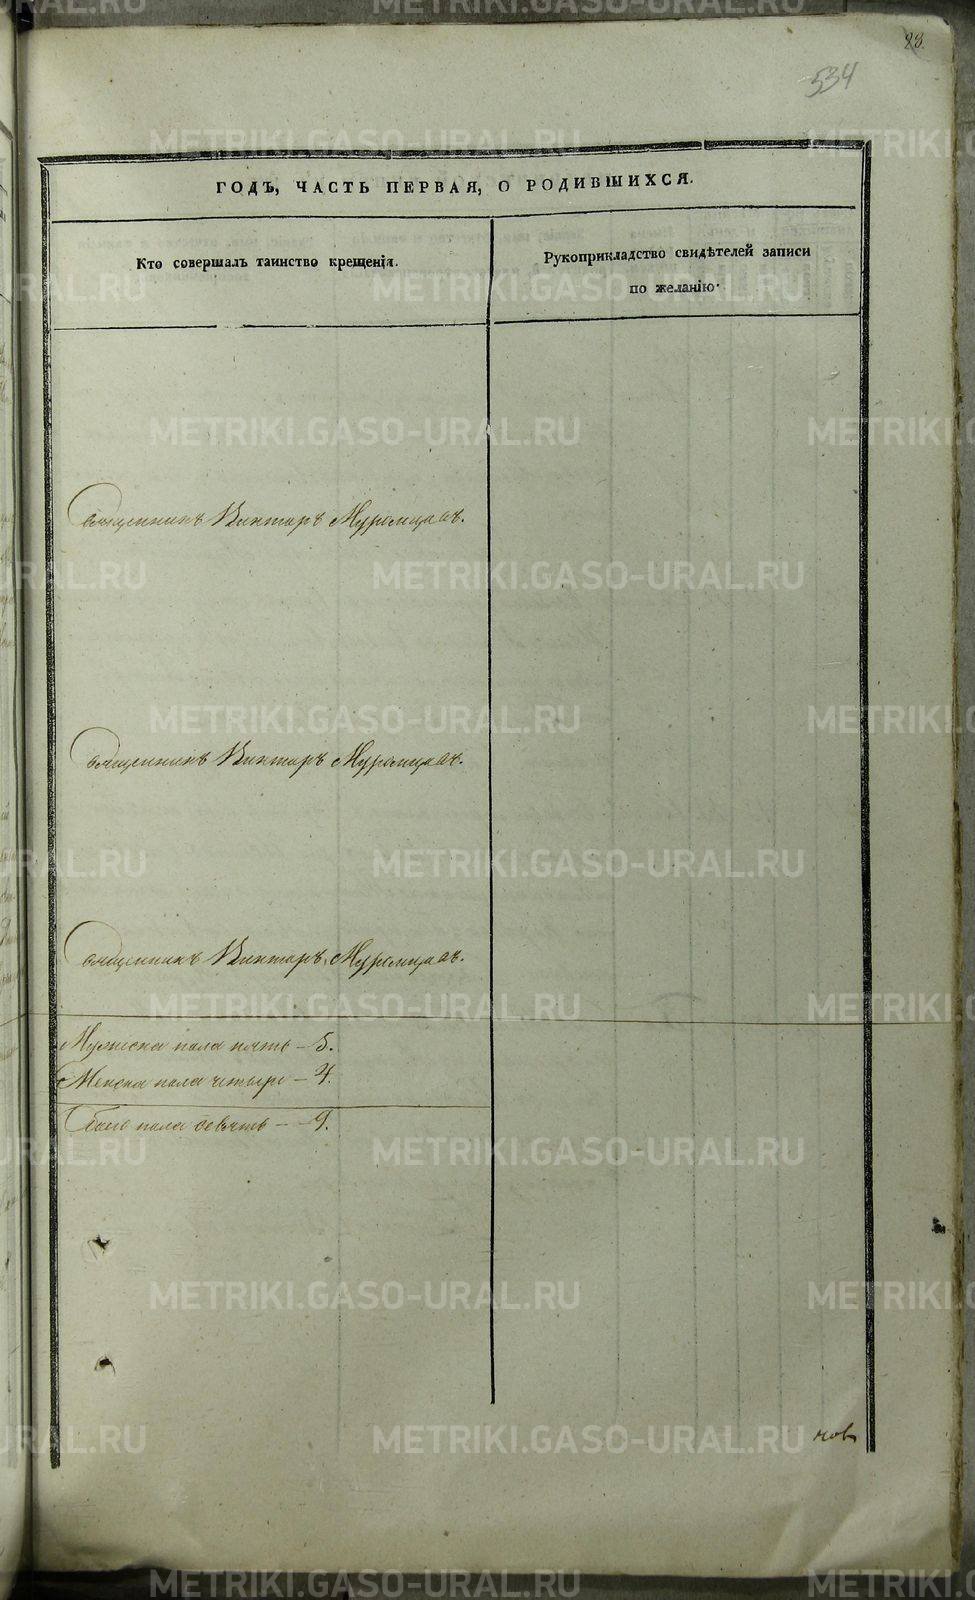 88.
534
ГОДЪ, ЧАСТЬ ПЕРВАЯ, О РОДИВШИХСЯ.
Кто совершалъ таинство крещенія.
Рукоприкладство свидѣтелей записи
по желанію.
Священникъ Викторъ Муромцовъ.
Священникъ Викторъ Муромцовъ.
Священникъ Викторъ Муромцовъ.
Мужеска пола пять – 5.
Женска пола четыре – 4.
Обоего пола девять – – 9.
METRIKI.GASO-URAL.RU